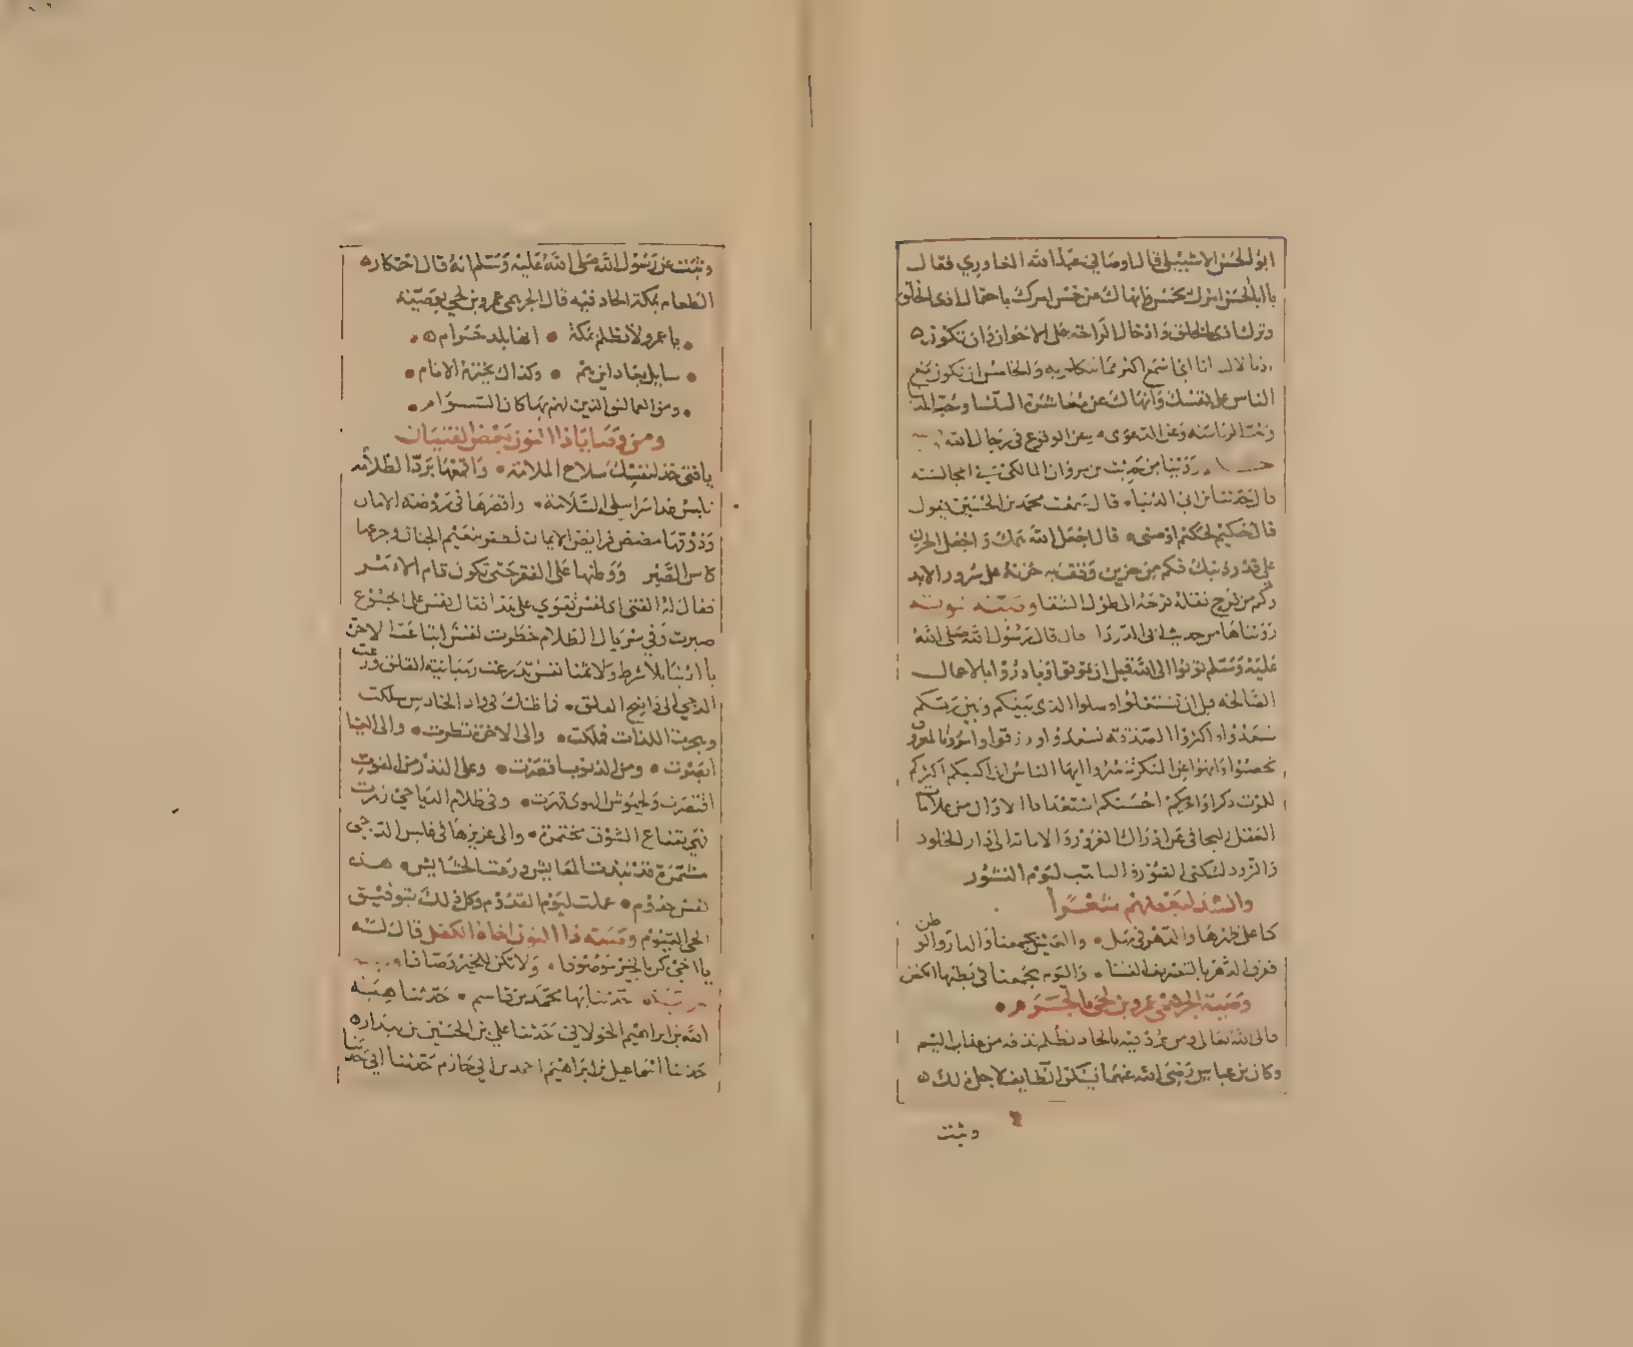 ابو الحسن الاشبيلي قال اوصاني عبد الله الغاوري فقال
يا ابا الحسن امرك بخمس وانهاك عن خمس امرك باحتمال اذى الخلق
وترك اذى الخلق وادخال الراحة على الاخوان وان تكون
اذنا لا لسانا اي اسمع اكثر مما تتكلم به والخامس ان تكون مع
الناس على نفسك وانهاك عن معاشرة النسا وحب الدنيا
وحب الرياسة وعن الدعوى وعن الوقوع في رجال الله
روينا من حديث بن مروان المالكي في المجالسة
قال حدثنا بن ابي الدنيا قال سمعت محمد بن الحسين يقول
قال حكيم لحكيم اوصني قال اجعل الله همك واجعل الحزن
على قدر ذنبك فكم من حزين وقف به حزنه على سرور الابد
وكم من فرح نقله فرحه الى طول الشقا وصية نبوية
رويناها من حديث ابي الدردا قال قال رسول الله صلى الله
عليه وسلم توبوا الى الله قبل ان تموتوا وبادروا بالاعمال
الصالحة قبل ان تشتغلوا وصلوا الذي بينكم وبين ربكم
تسعدوا واكثروا الصدقة ترزقوا وامروا بالمعروف
تحصنوا وانهوا عن المنكر تنصروا ايها الناس ان اكيسكم اكثركم
للموت ذكرا واحزمكم احسنكم استعدادا الا وان من علامات
العقل التجافي عن دار الغرور والانابة الى دار الخلود
والتزود لسكنى القبور والتاهب ليوم النشور
والشد لبعضهم شعرا
كنا على ظهرها والدهر في مهل والعيش يجمعنا والدار والوطن
ففرق الدهر بالتصريف الفتنا واليوم يجمعنا في بطنها الكفن
وصية الجرهمي عمرو بن لحي بالحرم
قال الله تعالى ومن يرد فيه بالحاد بظلم نذقه من عذاب اليم
وكان بن عباس رضي الله عنهما يسكن الطايف لاجل ذلك
وثبت
وثبت عن رسول الله صلى الله عليه وسلم انه قال احتكار
الطعام بمكة الحاد فيه قال الجرهمي عمرو بن لحي يوصيه
يا عمرو لا تظلم بمكة انها بلد حرام
سايل بعاد اين هم وكذاك يخترم الانام
ومن العماليق الذين لهم بها كان السوام
ومن وصايا ذا النون بعض الفتيان
يا فتى خذ لنفسك سلاح الملامة واقمعها برد الظلامة
تلبس غدا سرابيل السلامة واقصرها في روضة الامان
وذوقها مضض فرايض الايمان تظفر بنعيم الجنان وجرعها
كاس الصبر ووطنها على الفقر حتى تكون تام الامر
فقال له الفتى اي نفس تقوى على هذا فقال نفس على الجوع
صبرت وفي سربال الظلام خطرت نفس ابتاعت الاخرة
بالدنيا بلا شرط ولا ثنيا نفس تدرعت رهبانية القلق ورعت
الدجى الى واضح الفلق فما ظنك بنفس في واد الحنادس سلكت
وهجرت اللذات فملكت والى الاخرة نظرت والى العنا
ابصرت وعن الذنوب اقصرت وعلى النذر من القوت
اقتصرت ولجيوش الهوى قهرت وفي ظلام الدياجي زهرت
فهي بقناع الشوق مختمرة والى عزيزها في غلس الدجى
مشمرة قد نبذت المعايش ورعت الحشايش هذه
نفس خدوم عملت ليوم القدوم وكل ذلك بتوفيق
الحي القيوم وصية ذا النون اخاه الكفل قال له
يا اخي كن بالخير موصوفا ولا تكن للخير وصافا
حدثنا بها محمد بن قاسم حدثنا هبة
الله بن ابراهيم الخولاني حدثنا علي بن الحسين بن بندار
حدثنا اسماعيل بن ابراهيم احمد بن ابي حازم حدثنا ابي حدثنا